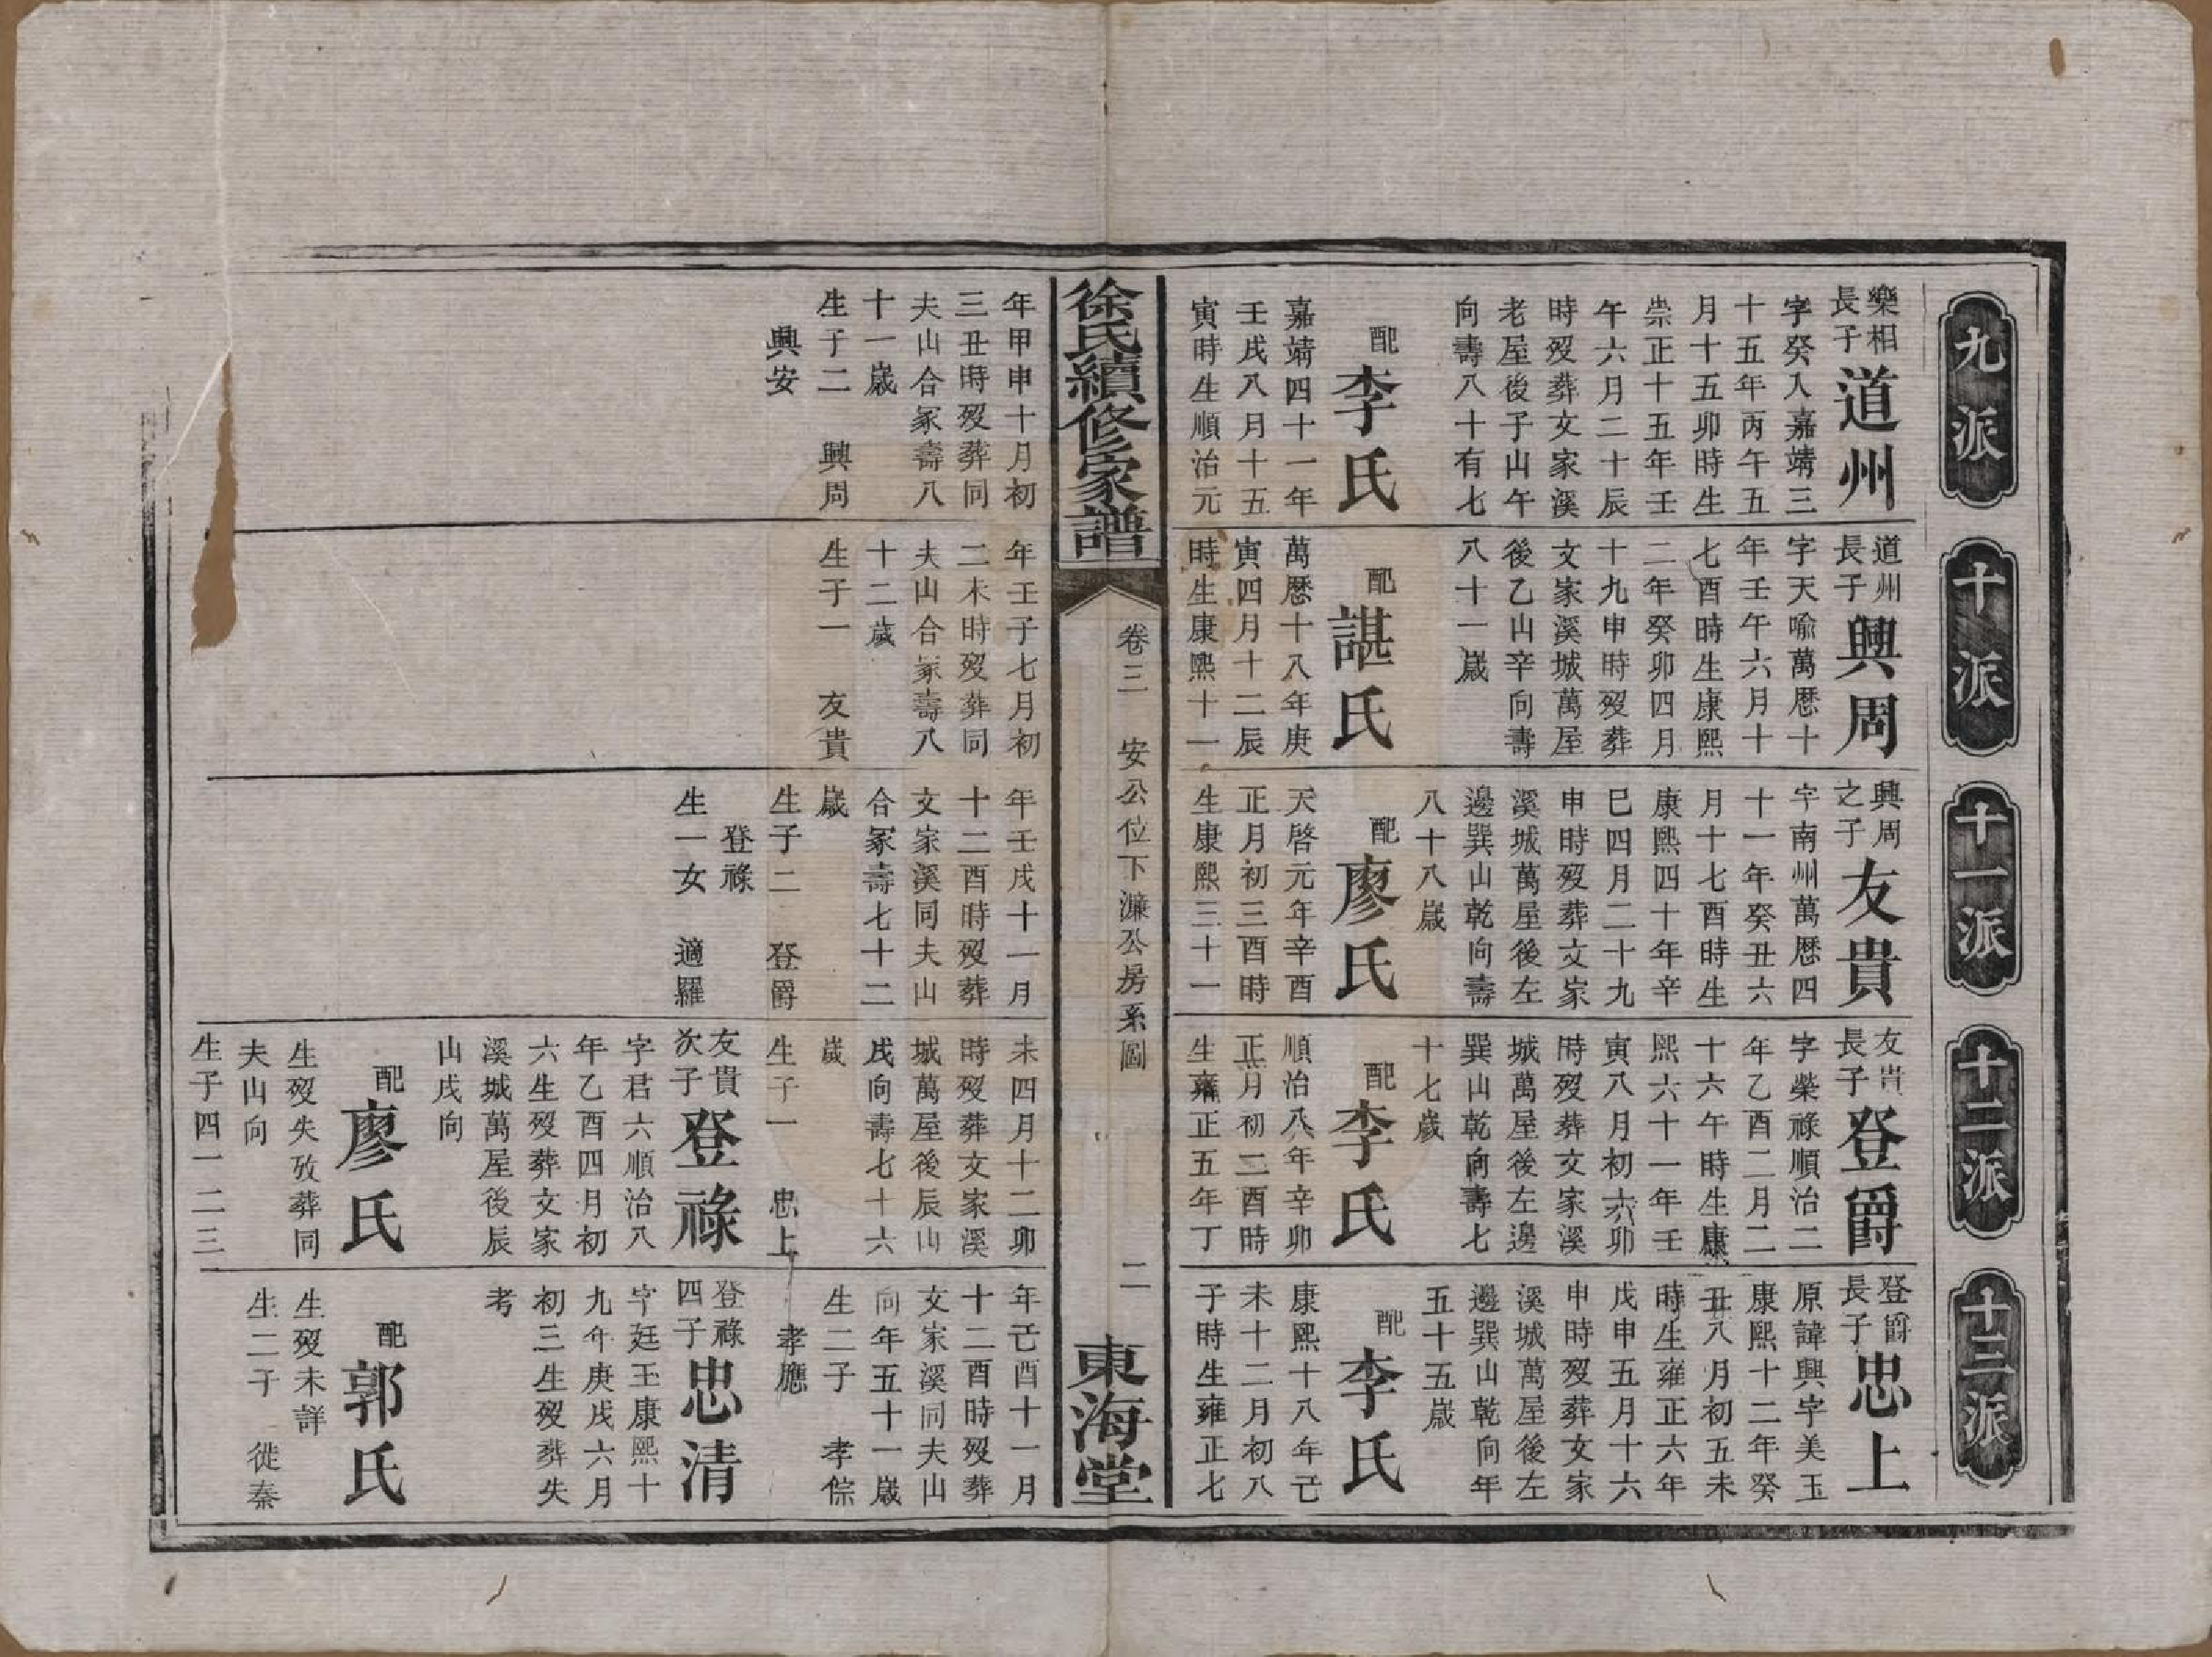 九派
樂相長子 道州
字癸入嘉靖三
十五年丙午五
月十五卯時生
崇正十五年壬
午六月二十辰
時歿葬文家溪
老屋後子山午
向壽八十有七
配 李氏
嘉靖四十一年
壬戌八月十五
寅時生順治元
年甲申十月初
三丑時歿葬同
夫山合冢壽八
十一歲
生子二 興周
興安
十派
道州長子 興周
字天喻萬曆十
年壬午六月十
七酉時生康熙
二年癸卯四月
十九申時歿葬
文家溪城萬屋
後乙山辛向壽
八十一歲
配 諶氏
萬曆十八年庚
寅四月十二辰
時生康熙十一
年壬子七月初
二未時歿葬同
夫山合冢壽八
十二歲
生子一 友貴
十一派
興周之子 友貴
字南州萬曆四
十一年癸丑六
月十七酉時生
康熙四十年辛
巳四月二十九
申時歿葬文家
溪城萬屋後左
邊巽山乾向壽
八十八歲
配 廖氏
天啓元年辛酉
正月初三酉時
生康熙三十一
年壬戌十一月
十二酉時歿葬
文家溪同夫山
合冢壽七十二
歲
生子二 登爵
登祿
生一女 適羅
十二派
友貴長子 登爵
字榮祿順治二
年乙酉二月二
十六午時生康
熙六十一年壬
寅八月初六卯
時歿葬文家溪
城萬屋後左邊
巽山乾向壽七
十七歲
配 李氏
順治八年辛卯
正月初二酉時
生雍正五年丁
未四月十二卯
時歿葬文家溪
城萬屋後辰山
戌向壽七十六
歲
生子一 忠上
友貴次子 登祿
字君六順治八
年乙酉四月初
六生歿葬文家
溪城萬屋後辰
山戌向
配 廖氏
生歿失攷葬同
夫山向
生子四一二三
十三派
登爵長子 忠上
原諱興字美玉
康熙十二年癸
丑八月初五未
時生雍正六年
戊申五月十六
申時歿葬文家
溪城萬屋後左
邊巽山乾向年
五十五歲
配 李氏
康熙十八年己
未十二月初八
子時生雍正七
年己酉十一月
十二酉時歿葬
文家溪同夫山
向年五十一歲
生二子 孝倧
孝應
登祿四子 忠清
字廷玉康熙十
九年庚戌六月
初三生歿葬失
考
配 郭氏
生歿未詳
生二子 徙秦
徐氏續修家譜
卷三 安公位下濂公房系圖
二
東海堂